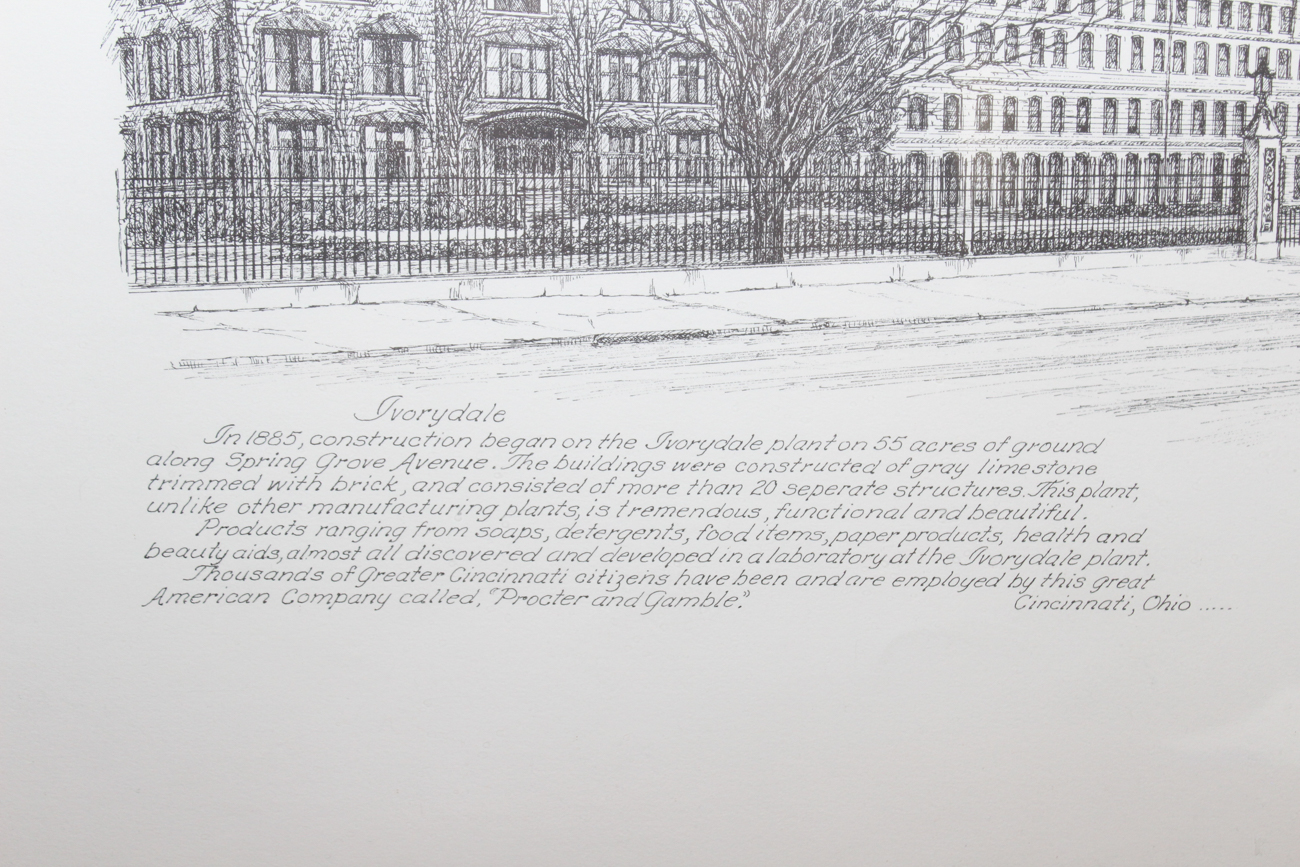 Ivorydale
In 1885, construction began on the Ivorydale plant on 55 acres of ground
along Spring Grove Avenue. The buildings were constructed of gray limestone
trimmed with brick, and consisted of more than 20 seperate structures. This plant,
unlike other manufacturing plants, is tremendous, functional and beautiful.
Products ranging from soaps, detergents, food items, paper products, health and
beauty aids, almost all discovered and developed in a laboratory at the Ivorydale plant.
Thousands of Greater Cincinnati citizens have been and are employed by this great
American Company called, "Procter and Gamble." Cincinnati, Ohio .....